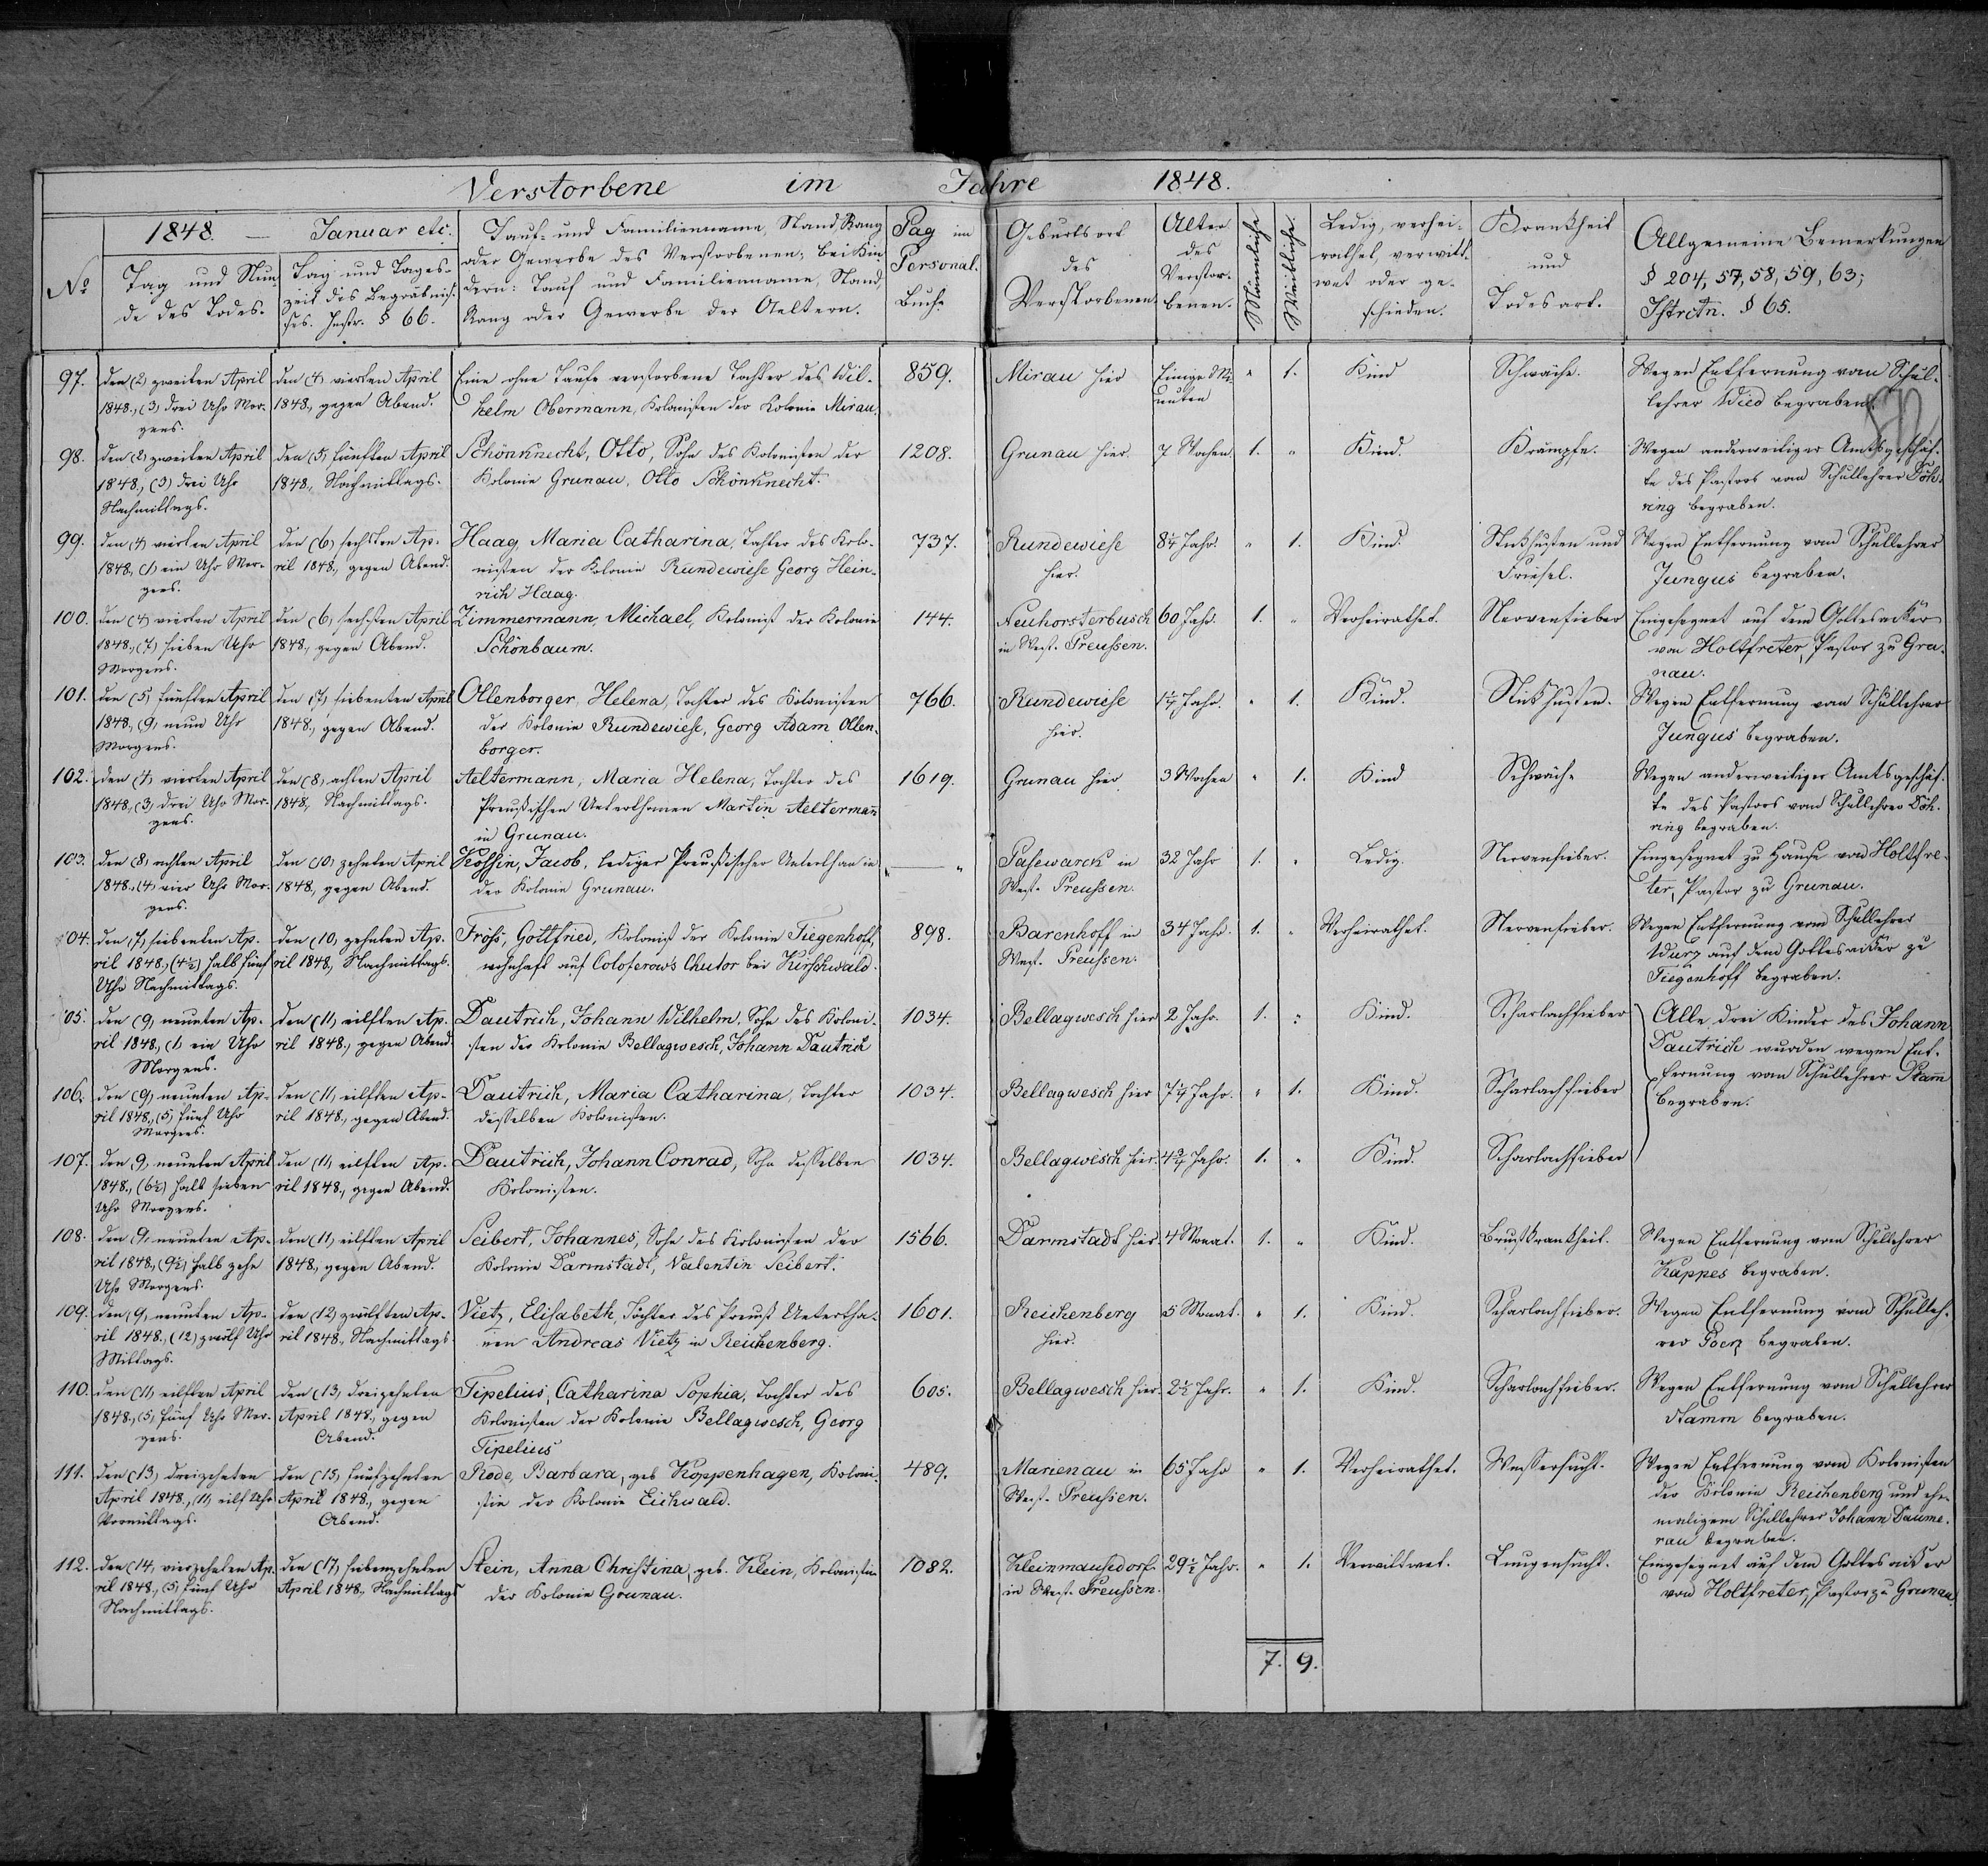 Verstorbene im Jahre 1848.
No
1848. — Januar etc.
Tag und Stun-
de des Todes.
Tag und Tages-
zeit des Begräbnis-
ses. Instr. § 66.
Tauf- und Familienname, Stand, Rang
oder Gewerbe des Verstorbenen; bei Kin-
dern: Tauf und Familienname, Stand,
Rang oder Gewerbe der Aeltern.
Pag im
Personal-
Buche
Geburtsort
des
Verstorbenen.
Alter
des
Verstor-
benen.
Männliche
Weibliche
Ledig, verhei-
rathet, verwitt-
wet oder ge-
schieden.
Krankheit
und
Todesart.
Allgemeine Bemerkungen
§ 204, 57, 58, 59, 63;
Istrctn. § 65.
97.
den (2) zweiten April
1848, (3) drei Uhr Mor-
gens.
den (4) vierten April
1848, gegen Abend.
Eine ohne Taufe verstorbene Tochter des Wil-
helm Obermann, Kolonisten der Kolonie Mirau.
859.
Mirau hier
Einige Mi-
nuten
" 1.
Kind
Schwäche.
Wegen Entfernung vom Schul-
lehrer Wied begraben.
98.
den (2) zweiten April
1848, (3) drei Uhr
Nachmittags.
den (5) fünften April
1848, Nachmittags.
Schönknecht, Otto, Sohn des Kolonisten der
Kolonie Grunau, Otto Schönknecht.
1208.
Grunau hier.
7 Wochen.
1. "
Kind.
Krämpfe.
Wegen anderweitiger Amtsgeschäf-
te des Pastors vom Schullehrer Döh-
ring begraben.
99.
den (4) vierten April
1848, (1) ein Uhr Mor-
gens.
den (6) sechsten Ap-
ril 1848, gegen Abend.
Haag, Maria Catharina, Tochter des Kolo-
nisten der Kolonie Rundewiese Georg Hein-
rich Haag.
737.
Rundewiese
hier.
8¼ Jahr.
" 1.
Kind.
Stickhusten und
Friesel.
Wegen Entfernung vom Schullehrer
Jungus begraben.
100.
den (4) vierten April
1848, (7) sieben Uhr
Morgens.
den (6) sechsten April
1848, gegen Abend.
Zimmermann, Michael, Kolonist der Kolonie
Schönbaum.
144.
Neuhorsterbusch
in West-Preussen.
60 Jahr.
1. "
Verheirathet.
Nervenfieber
Eingesegnet auf dem Gottesacker
von Holtfreter, Pastor zu Gru-
nau.
101.
den (5) fünften April
1848, (9) neun Uhr
Morgens.
den (7) siebenten April
1848, gegen Abend.
Ollenborger, Helena, Tochter des Kolonisten
der Kolonie Rundewiese, Georg Adam Ollen-
borger.
766.
Rundewiese
hier.
1¼ Jahr.
" 1.
Kind.
Stickhusten.
Wegen Entfernung vom Schullehrer
Jungus begraben.
102.
den (4) vierten April
1848, (3) drei Uhr Mor-
gens.
den (8) achten April
1848, Nachmittags.
Aeltermann, Maria Helena, Tochter des
Preußischen Unterthanen Martin Aeltermann
in Grunau.
1619.
Grunau hier.
3 Wochen
" 1.
Kind
Schwäche
Wegen anderweitiger Amtsgeschäf-
te des Pastors vom Schullehrer Döh-
ring begraben.
103.
den (8) achten April
1848, (4) vier Uhr Mor-
gens.
den (10) zehnten April
1848, gegen Abend.
Kossin, Jacob, lediger Preußischer Unterthan in
der Kolonie Grunau.
" — "
Pasewarck in
West-Preussen.
32 Jahr
1. "
Ledig.
Nervenfieber.
Eingesegnet zu Hause von Holtfre-
ter, Pastor zu Grunau.
104.
den (7) siebenten Ap-
ril 1848, (4½) halb fünf
Uhr Nachmittags.
den (10) zehnten Ap-
ril 1848, Nachmittags.
Fröss, Gottfried, Kolonist der Kolonie Tiegenhoff,
wohnhaft auf Coloserows Chutor bei Kirschwald.
898.
Barenhoff in
West-Preussen.
34 Jahr.
1. "
Verheirathet.
Nervenfieber.
Wegen Entfernung vom Schullehrer
Wurz auf dem Gottesacker zu
Tiegenhoff begraben.
105.
den (9) neunten Ap-
ril 1848, (1) ein Uhr
Morgens.
den (11) eilften Ap-
ril 1848, gegen Abend.
Dautrich, Johann Wilhelm, Sohn des Koloni-
sten der Kolonie Bellagwesch, Johann Dautrich
1034.
Bellagwesch hier
2 Jahr.
1. "
Kind.
Scharlachfieber
Alle drei Kinder des Johann
Dautrich wurden wegen Ent-
fernung vom Schullehrer Stamm
begraben.
106.
den (9) neunten Ap-
ril 1848, (5) fünf Uhr
Morgens.
den (11) eilften Ap-
ril 1848, gegen Abend.
Dautrich, Maria Catharina, Tochter
desselben Kolonisten.
1034.
Bellagwesch hier
7¼ Jahr.
" 1.
Kind.
Scharlachfieber
107.
den (9) neunten April
1848, (6½) halb sieben
Uhr Morgens.
den (11) eilften Ap-
ril 1848, gegen Abend.
Dautrich, Johann Conrad, Sohn desselben
Kolonisten.
1034.
Bellagwesch hier.
4¾ Jahr.
1. "
Kind.
Scharlachfieber
108.
den (9) neunten Ap-
ril 1848, (9½) halb zehn
Uhr Morgens.
den (11) eilften April
1848, gegen Abend.
Seibert, Johannes, Sohn des Kolonisten der
Kolonie Darmstadt, Valentin Seibert.
1566.
Darmstadt hier.
4 Monat.
1. "
Kind.
Brustkrankheit.
Wegen Entfernung vom Schullehrer
Kappes begraben.
109.
den (9) neunten Ap-
ril 1848, (12) zwölf Uhr
Mittags.
den (12) zwölften Ap-
ril 1848, Nachmittags
Vietz, Elisabeth, Tochter des Preuß. Untertha-
nen Andreas Vietz in Reichenberg.
1601.
Reichenberg
hier.
5 Monat.
" 1.
Kind.
Scharlachfieber.
Wegen Entfernung vom Schulleh-
rer Goerz begraben.
110.
den (11) eilften April
1848, (5) fünf Uhr Mor-
gens.
den (13) dreizehnten
April 1848, gegen
Abend.
Tipelius, Catharina Sophia, Tochter des
Kolonisten der Kolonie Bellagwesch, Georg
Tipelius
605.
Bellagwesch hier.
2½ Jahr.
" 1.
Kind.
Scharlachfieber.
Wegen Entfernung vom Schullehrer
Stamm begraben.
111.
den (13) dreizehnten
April 1848, (11) eilf Uhr
Vormittags.
den (15) fünfzehnten
April 1848, gegen
Abend.
Rode, Barbara, geb Koppenhagen, Koloni-
stin der Kolonie Eichwald.
489.
Marienau in
West-Preussen.
65 Jahr
" 1.
Verheirathet.
Wassersucht.
Wegen Entfernung vom Kolonisten
der Kolonie Reichenberg und ehe-
maligem Schullehrer Johann Daume-
rau begraben.
112.
den (14) vierzehnten Ap-
ril 1848, (5) fünf Uhr
Nachmittags.
den (17) siebenzehnten
April 1848, Nachmittags
Stein, Anna Christina, geb. Klein, Kolonistin
der Kolonie Grunau.
1082.
Kleinmausdorf
in West-Preussen.
29½ Jahr.
" 1.
Verwittwet.
Lungensucht.
Eingesegnet auf dem Gottesacker
von Holtfreter, Pastor zu Grunau.
7. 9.